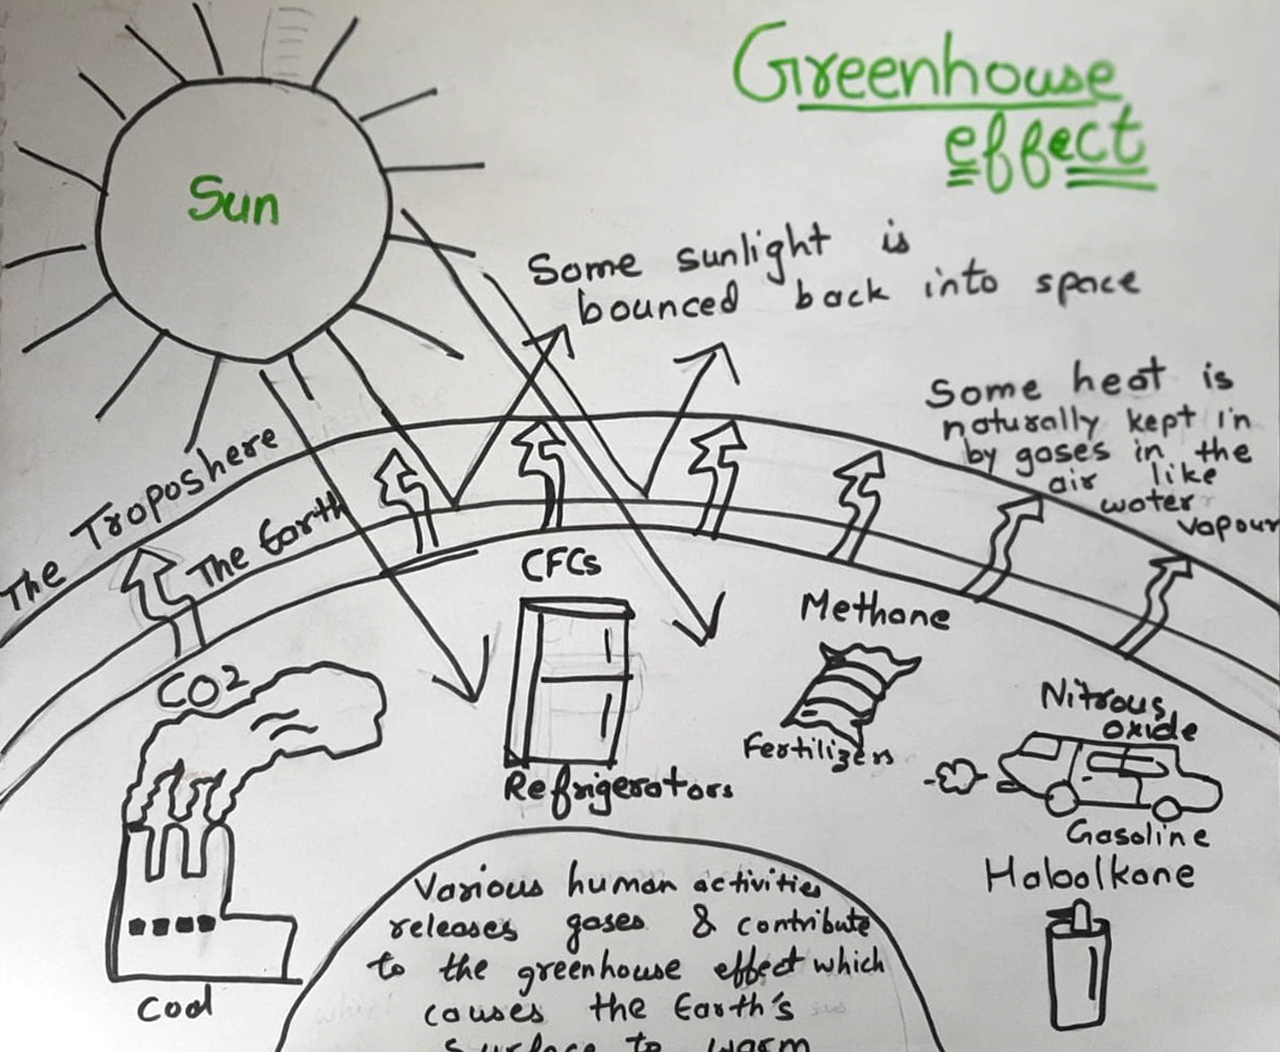 Greenhouse
effect
Sun
Some sunlight is
bounced back into space
Some heat is
naturally kept in
by gases in the
air like
water
vapour
The Troposhere
The Earth
CFCs
Refrigerators
Methane
Fertilizers
Nitrous
oxide
Gasoline
CO2
Coal
Haloalkane
Various human activities
releases gases & contribute
to the greenhouse effect which
causes the Earth's
surface to warm